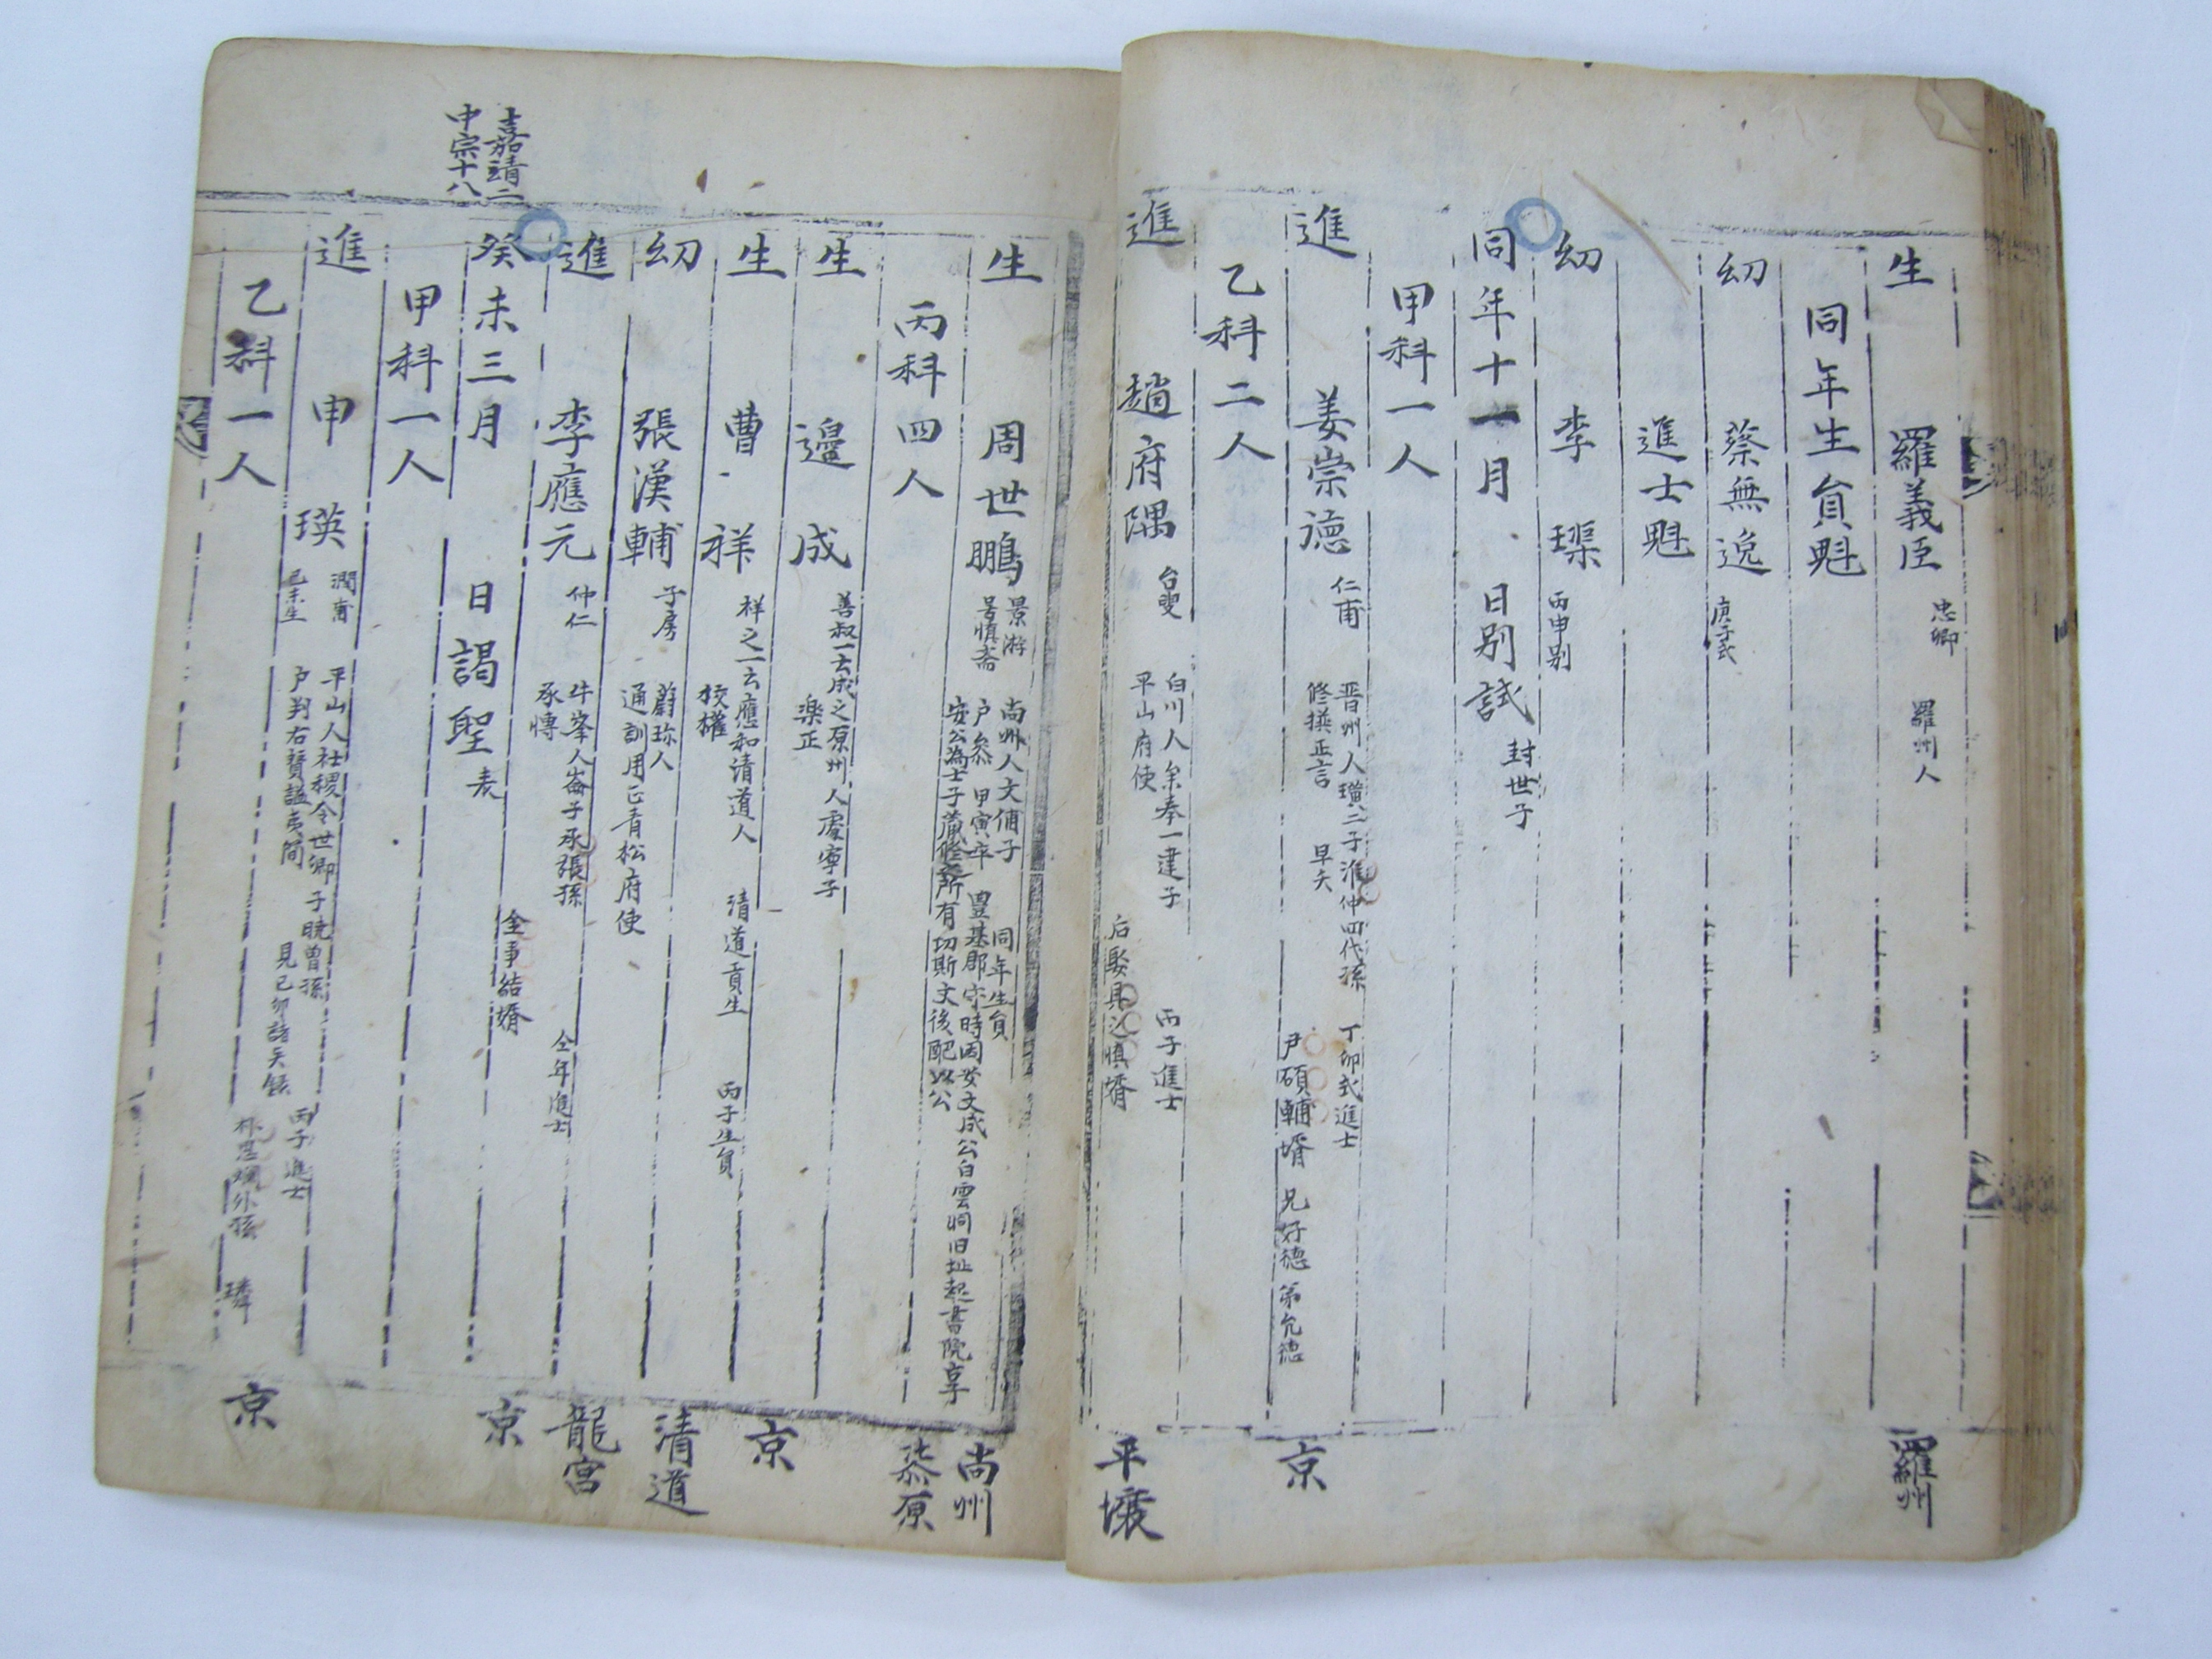 生 羅義臣 忠卿 羅州人 羅州
同年生員魁
幼 蔡無逸 庚子式
進士魁
幼 李璖 丙申別
同年十一月 日別試 封世子
甲科一人
進 姜崇德 仁甫 晋州人璜二子淮仲四代孫 丁卯式進士 京
修撰正言 早夭 尹碩輔壻 兄好德 弟允德
乙科二人
進 趙府隅 台叟 白川人 奉一建子 丙子進士 平壤
平山府使 后娶 慎壻
生 周世鵬 景游 尚州人文俌子 同年生員 尚州
号慎斋 户叅 甲寅卒 豊基郡守時因安文成公白雲洞旧址起書院享
安公為士子藏修之所有功斯文後配以公
丙科四人
生 邉成 善叔一云成之原州人處寧子
樂正
生 曹祥 祥之一云應和清道人 清道貢生 丙子生員
校權
幼 張漢輔 子房 蔚珎人
通訓用正青松府使
進 李應元 仲仁 牛峯人崙子承張孫 仝年進士
承博
嘉靖二
中宗十八
癸未三月 日謁聖 表 仝事結婿
甲科一人
進 申瑛 潤甫 平山人社稷令世卿子暁曾孫 丙子進士
己未生 户判右賛謚夷簡 見己卯諸天錄
乙科一人
京
清道
龍宮
京
京